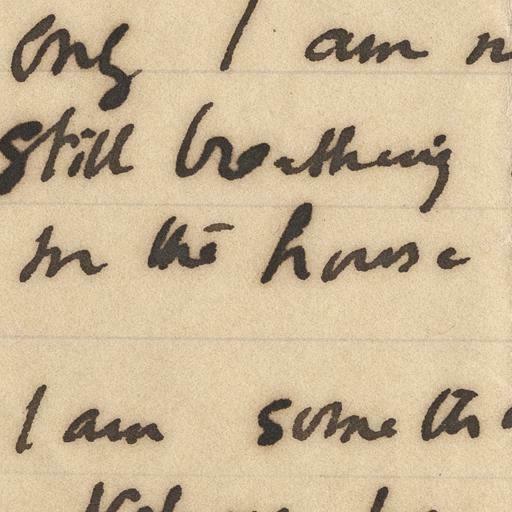 only I am n
still breathing
in the house
I am someth